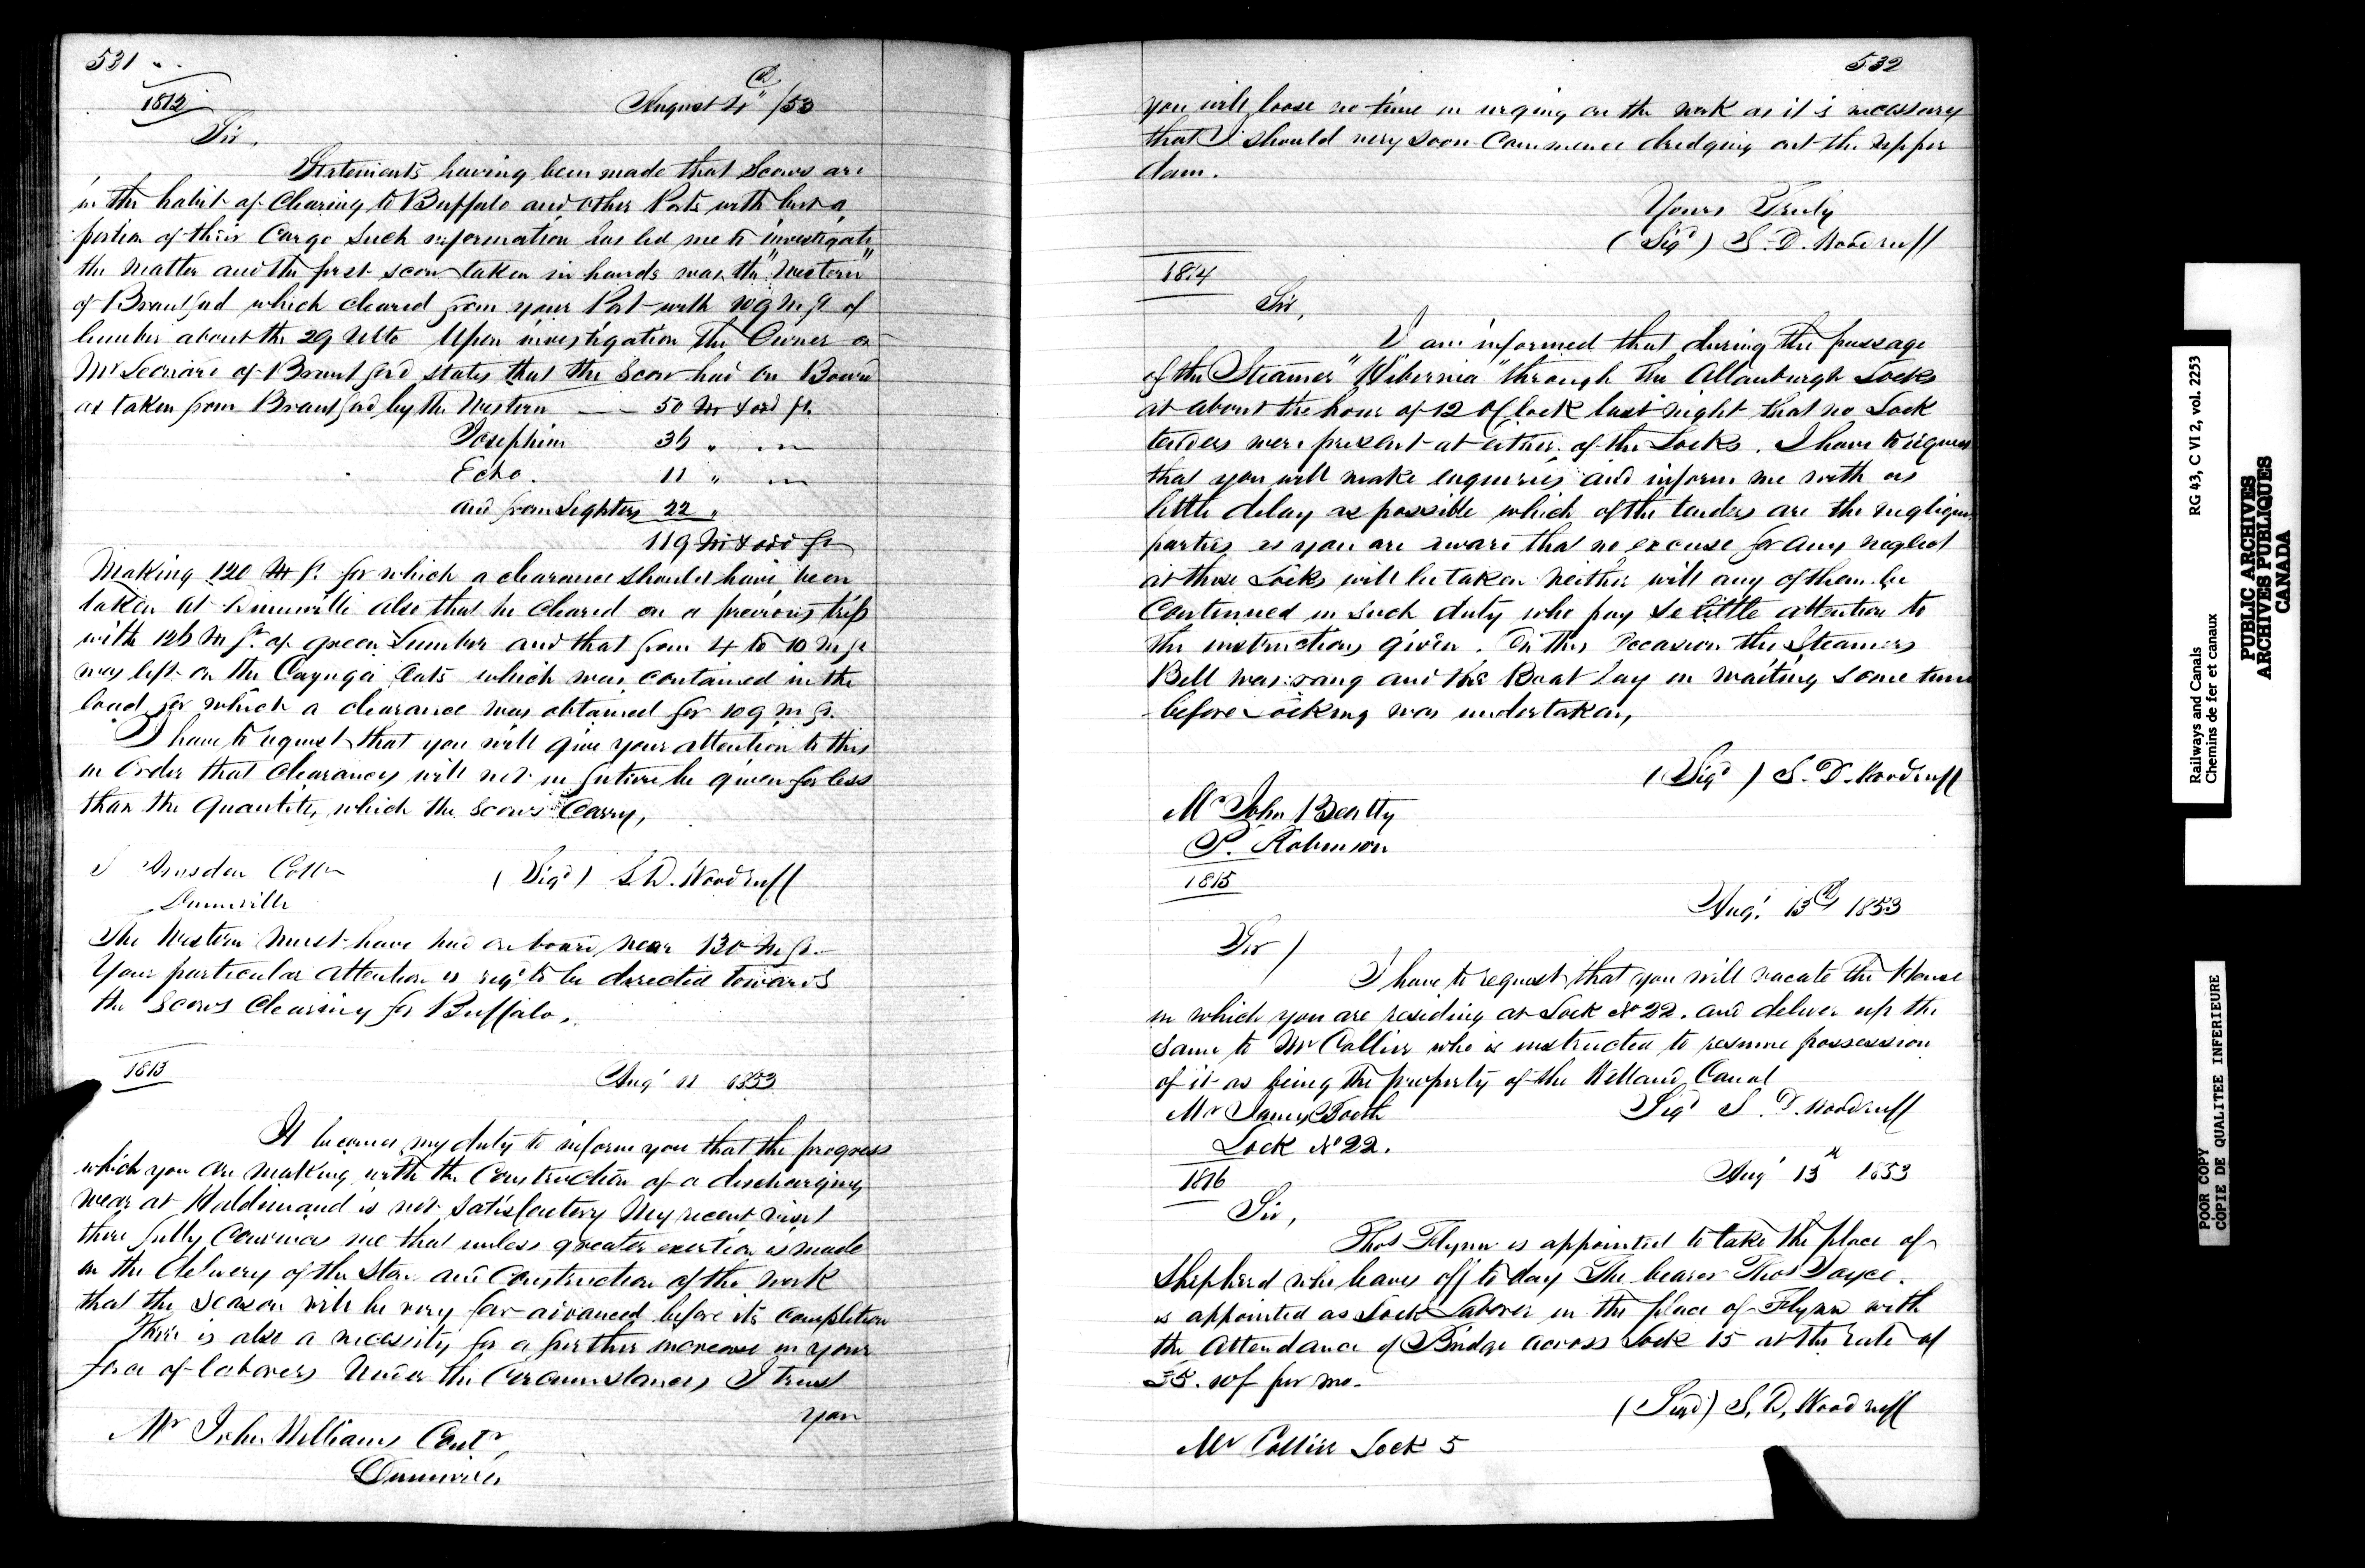 531
1812
August 4th /53
Sir,
Statements having been made that Scows are
in the habit of Clearing to Buffalo and other Ports with but a
portion of their Cargo Such information has led me to investigate
the matter and the first scow taken in hands was the "Western"
of Brantford which cleared from your Port with 109 M ft of
lumber about the 29 Ulto Upon investigation the Owner
Mr of Brantford states that the Scow had on Board
as taken from Brantford by the Western — — 50 M & odd ft.
Josephine 36 " "
Echo. 11 " "
and from Lighters 22 "
119 M & odd ft
Making 120 M ft. for which a clearance should have been
taken at Dunnville also that he cleared on a previous trip
with 126 M ft. of green Lumber and that from 4 to 10 M ft
was left on the Cayuga which was contained in the
load for which a clearance was obtained for 109 M ft.
I have to request that you will give your attention to this
in Order that Clearances will not in future be given for less
than the quantity which the scows Carry,
Coller
Dunnville
(Sigd) S.D. Woodruff
The Western must have had on board near 130 M ft.
Your particular attention is reqd to be directed towards
the Scows Clearing for Buffalo,
1813
Augt 11 1853
It becomes my duty to inform you that the progress
which you are making with the Construction of a discharging
wear at Haldimand is not satisfactory My recent visit
there fully Convinces me that unless greater exertion is made
in the delivery of the Stone and Construction of the work
that the season will be very far advanced before its completion
There is also a necessity for a further increase in your
force of laborers Under the Circumstances I trust
you
Mr John Williams Contr,
Dunnville
532
you will loose no time in urging on the work as it is necessary
that I should very soon Commence dredging out the upper
dam.
Yours Truly
(Sigd) S. D. Woodruff
1814
Sir,
I am informed that during the passage
of the Steamer "Hibernia" through the Allanburgh Locks
at about the hour of 12 O'Clock last night that no Lock
tenders were present at either of the Locks. I have to request
that you will make enquiries and inform me with as
little delay as possible which of the tenders are the negligent
parties as you are aware that no excuse for any neglect
at those Locks will be taken neither will any of them be
Continued in such duty who pay so little attention to
the instructions given. On this Occasion the Steamers
Bell was rang and the Boat lay in waiting some time
before Locking was undertaken,
(Sigd) S. D. Woodruff
Mr John Beatty
P. Robinson
1815
Augt 13th 1853
Sir /
I have to request that you will vacate the House
in which you are residing at Lock No 22. and deliver up the
same to Mr Collier who is instructed to resume possession
of it as being the property of the Welland Canal
Mr James Booth
Sigd S. D. Woodruff
Lock No 22.
1816
Augt 13th 1853
Sir,
Thos Flynn is appointed to take the place of
Shepherd who leaves off to day The bearer Thos Joyce.
is appointed as Lock Laborer in the place of Flynn with
the Attendance of Bridge across Lock 15 at the rate of
per mo.
(Signd) S. D. Woodruff
Mr Collier Lock 5
Railways and Canals
Chemins de fer et canaux
RG 43, C VI 2, vol. 2253
PUBLIC ARCHIVES
ARCHIVES PUBLIQUES
CANADA
POOR COPY
COPIE DE QUALITEE INFERIEURE